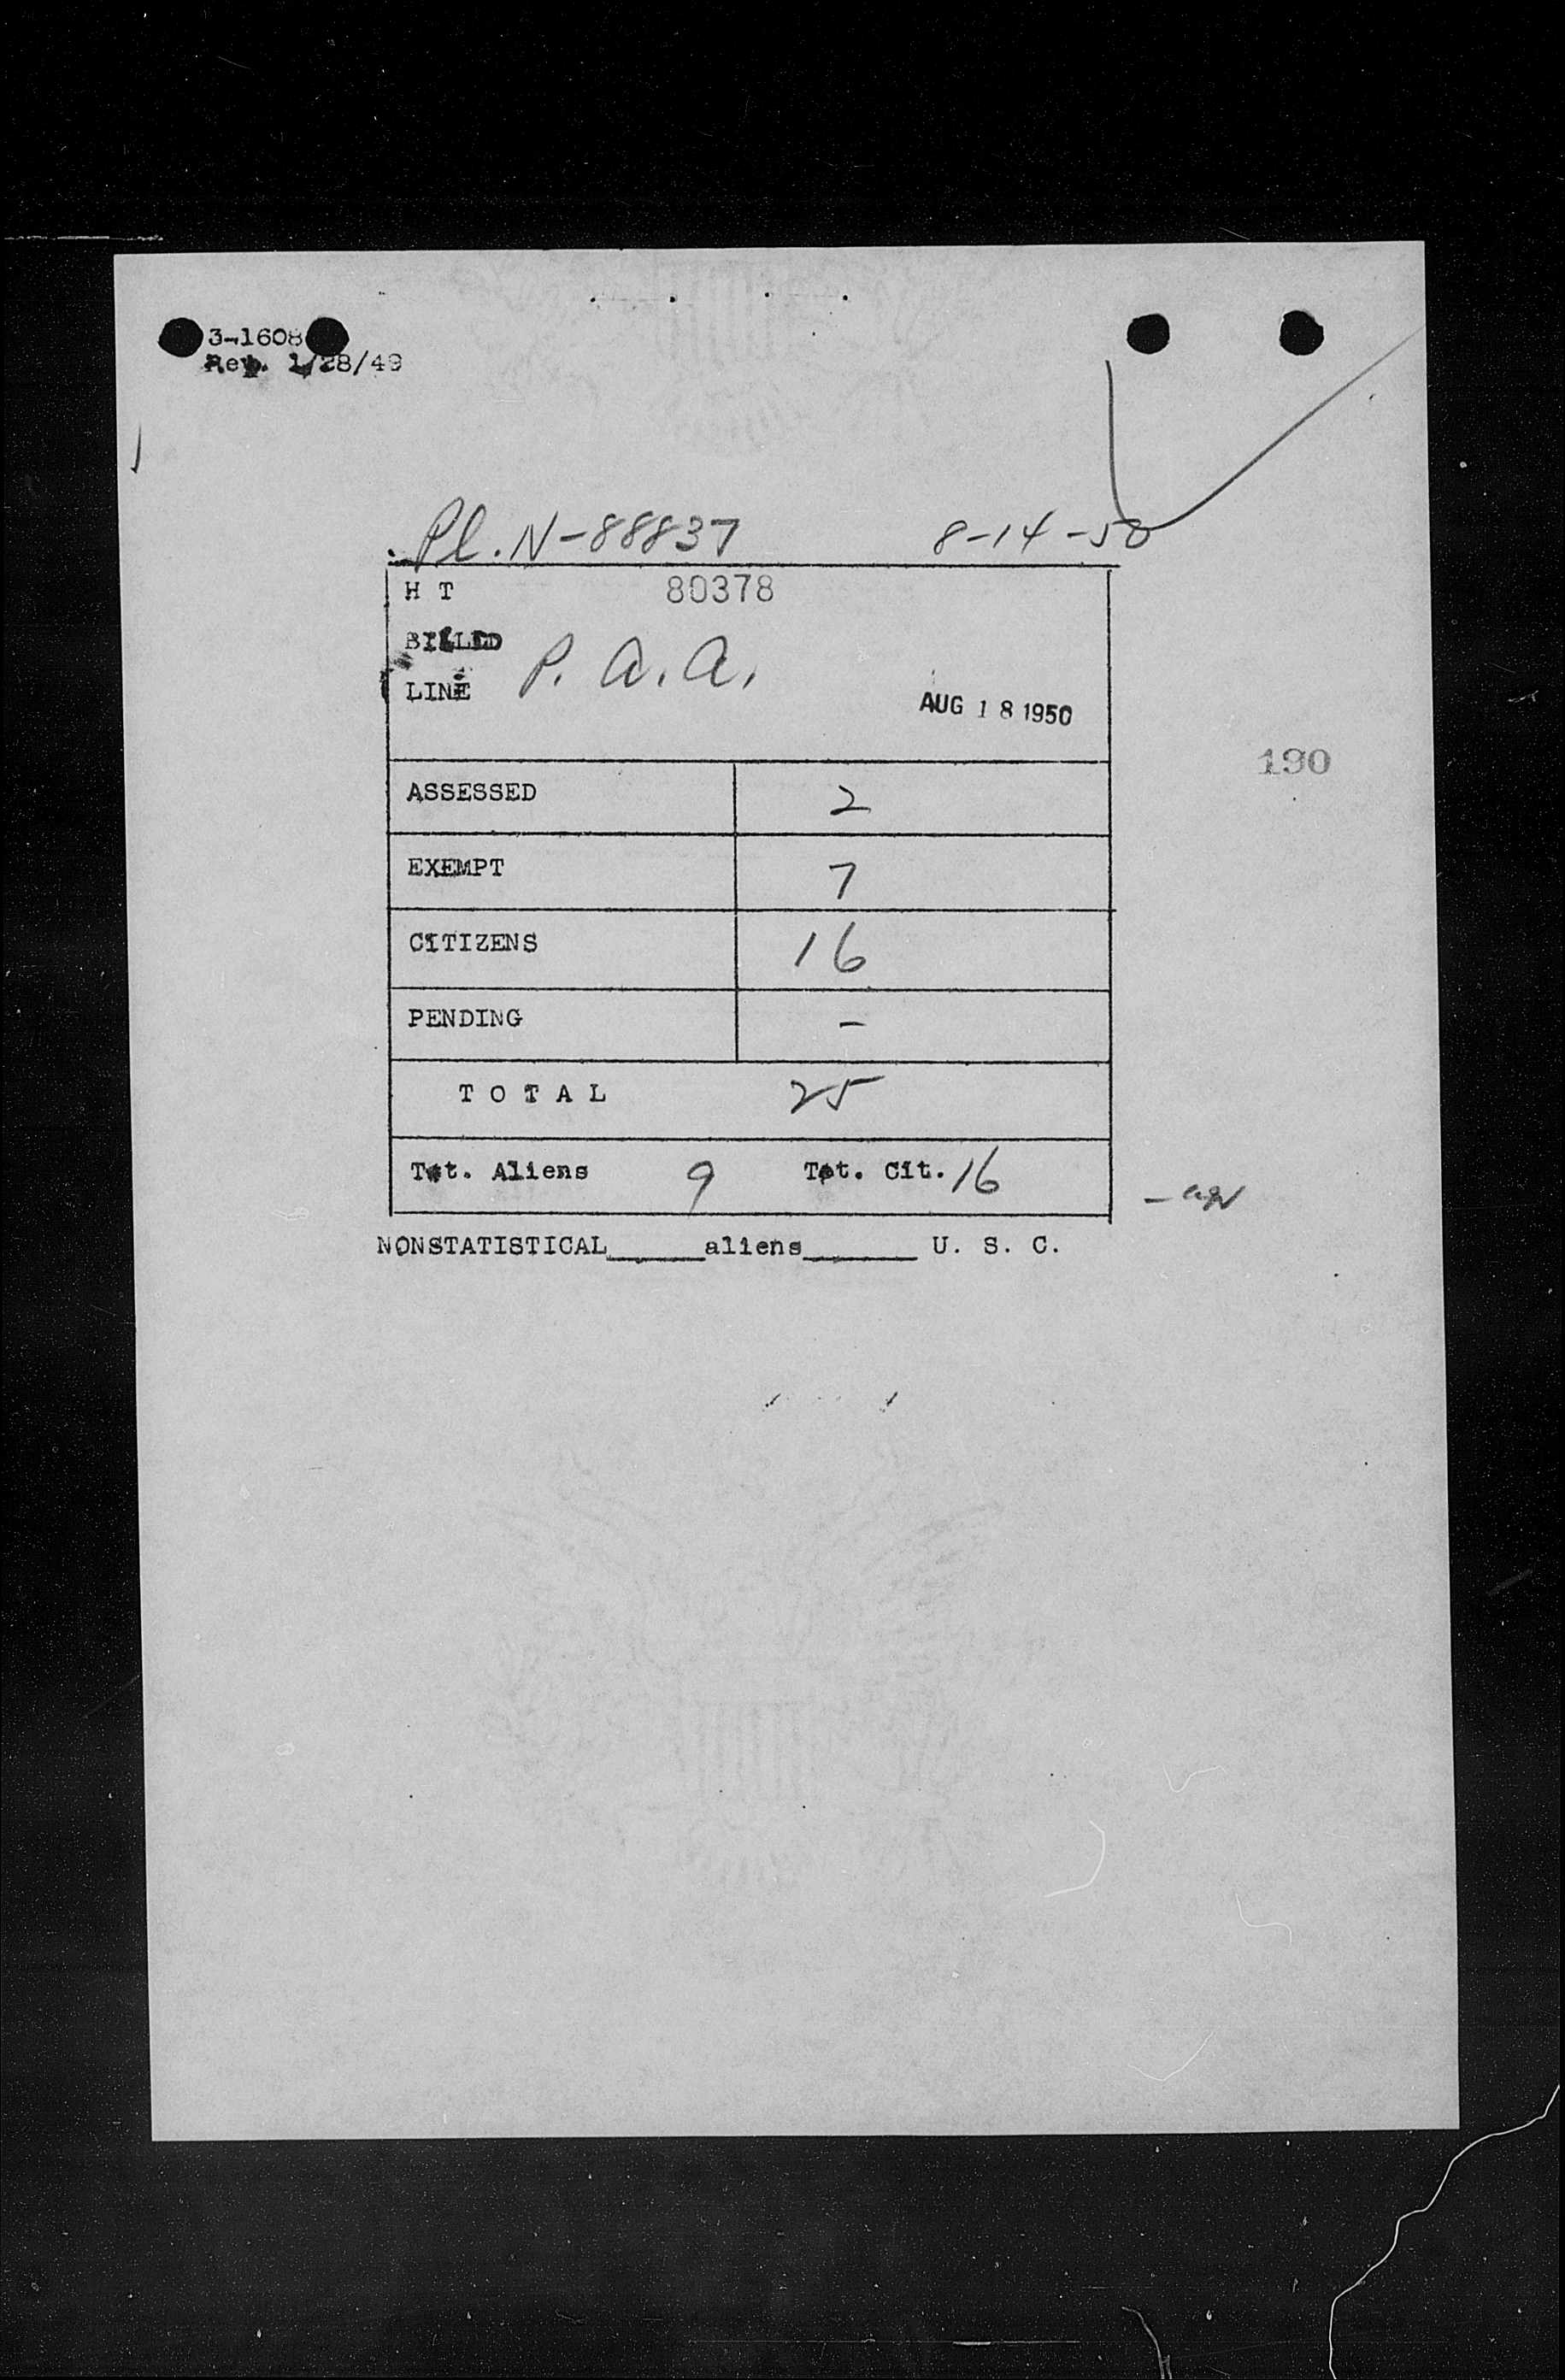 3-1608
Rev. 1/28/49
Pl. N-88837 8-14-50
H T 80378
BILLED
P. A. A.
LINE
AUG 18 1950
190
ASSESSED 2
EXEMPT 7
CITIZENS 16
PENDING -
T O T A L 25
Tot. Aliens 9 Tot. Cit. 16
NONSTATISTICAL______aliens_______ U. S. C.